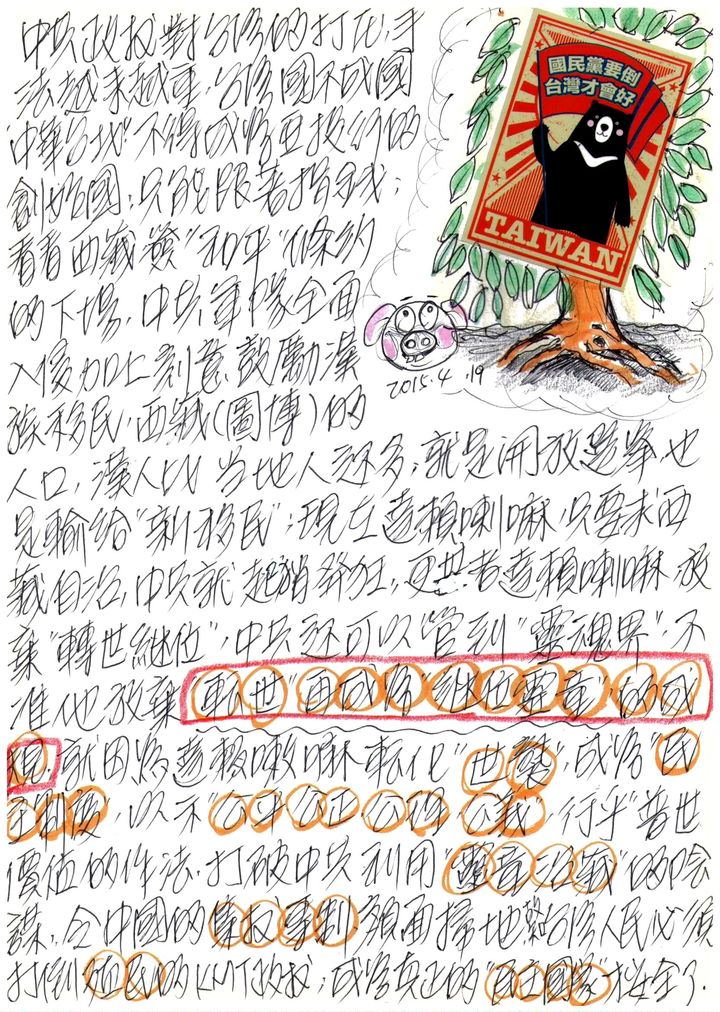 中共政权對台湾的打压,手
法越来越重,台湾國不成國
"中華台北"不得成為亞投行的
創始國,只能跟著捐錢;
看看西藏簽"和平"條約
的下場,中共軍隊全面
入侵加上刻意鼓動漢
族移民,西藏(圖博)的
人口,漢人比當地人还多,就是開放选舉也
是輸給"新移民";現在達賴喇嘛只要求西
藏自治,中共就起消發狂,更甚者達賴喇嘛放
棄"轉世継位",中共还可以管到"靈魂界",不
准他放棄轉世"再成為"継世靈童"的成
規,就因為達賴喇嘛転化"世襲",成為"民
主制度",以示"公平公正、公僕、公義",行乎"普世
價值的作法,打破中共利用"靈童治藏"的陰
謀,令中國的集权專制,顏面掃地;台湾人民必須
打倒殖民的KMT政权;成為真正的"民主國家"才安全了.
國民黨要倒
台灣才會好
TAIWAN
2015.4.19